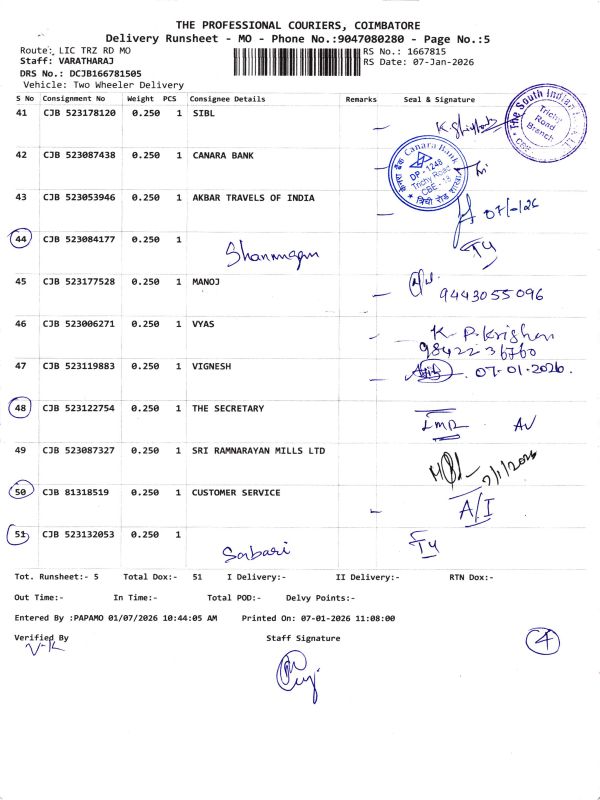 THE PROFESSIONAL COURIERS, COIMBATORE
Delivery Runsheet - MO - Phone No.:9047080280 - Page No.:5
Route: LIC TRZ RD MO RS No.: 1667815
Staff: VARATHARAJ RS Date: 07-Jan-2026
DRS No.: DCJB166781505
Vehicle: Two Wheeler Delivery
S No Consignment No Weight PCS Consignee Details Remarks Seal & Signature
41 CJB 523178120 0.250 1 SIBL
The South Indian
Trichy Road Branch
42 CJB 523087438 0.250 1 CANARA BANK
Canara Bank
DP - 1248
Trichy Road
CBE - 18
43 CJB 523053946 0.250 1 AKBAR TRAVELS OF INDIA
44 CJB 523084177 0.250 1 Shanmugam
45 CJB 523177528 0.250 1 MANOJ
9443055096
46 CJB 523006271 0.250 1 VYAS K P. Krishnan
98422 36760
47 CJB 523119883 0.250 1 VIGNESH 07-01-2026.
48 CJB 523122754 0.250 1 THE SECRETARY
49 CJB 523087327 0.250 1 SRI RAMNARAYAN MILLS LTD 7/1/2026
50 CJB 81318519 0.250 1 CUSTOMER SERVICE A/I
51 CJB 523132053 0.250 1 Sarbari
Tot. Runsheet:- 5 Total Dox:- 51 I Delivery:- II Delivery:- RTN Dox:-
Out Time:- In Time:- Total POD:- Delvy Points:-
Entered By :PAPAMO 01/07/2026 10:44:05 AM Printed On: 07-01-2026 11:08:00
Verified By Staff Signature
V-K
4